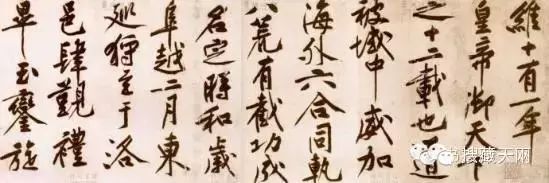 維十有一年
皇帝御天下
之十二載也道
被域中威加
海外六合同軌
八荒有截功成
名定時和歲
阜越二月東
巡狩至于洛
邑肆覲禮
畢玉鑾旋
搜藏天网